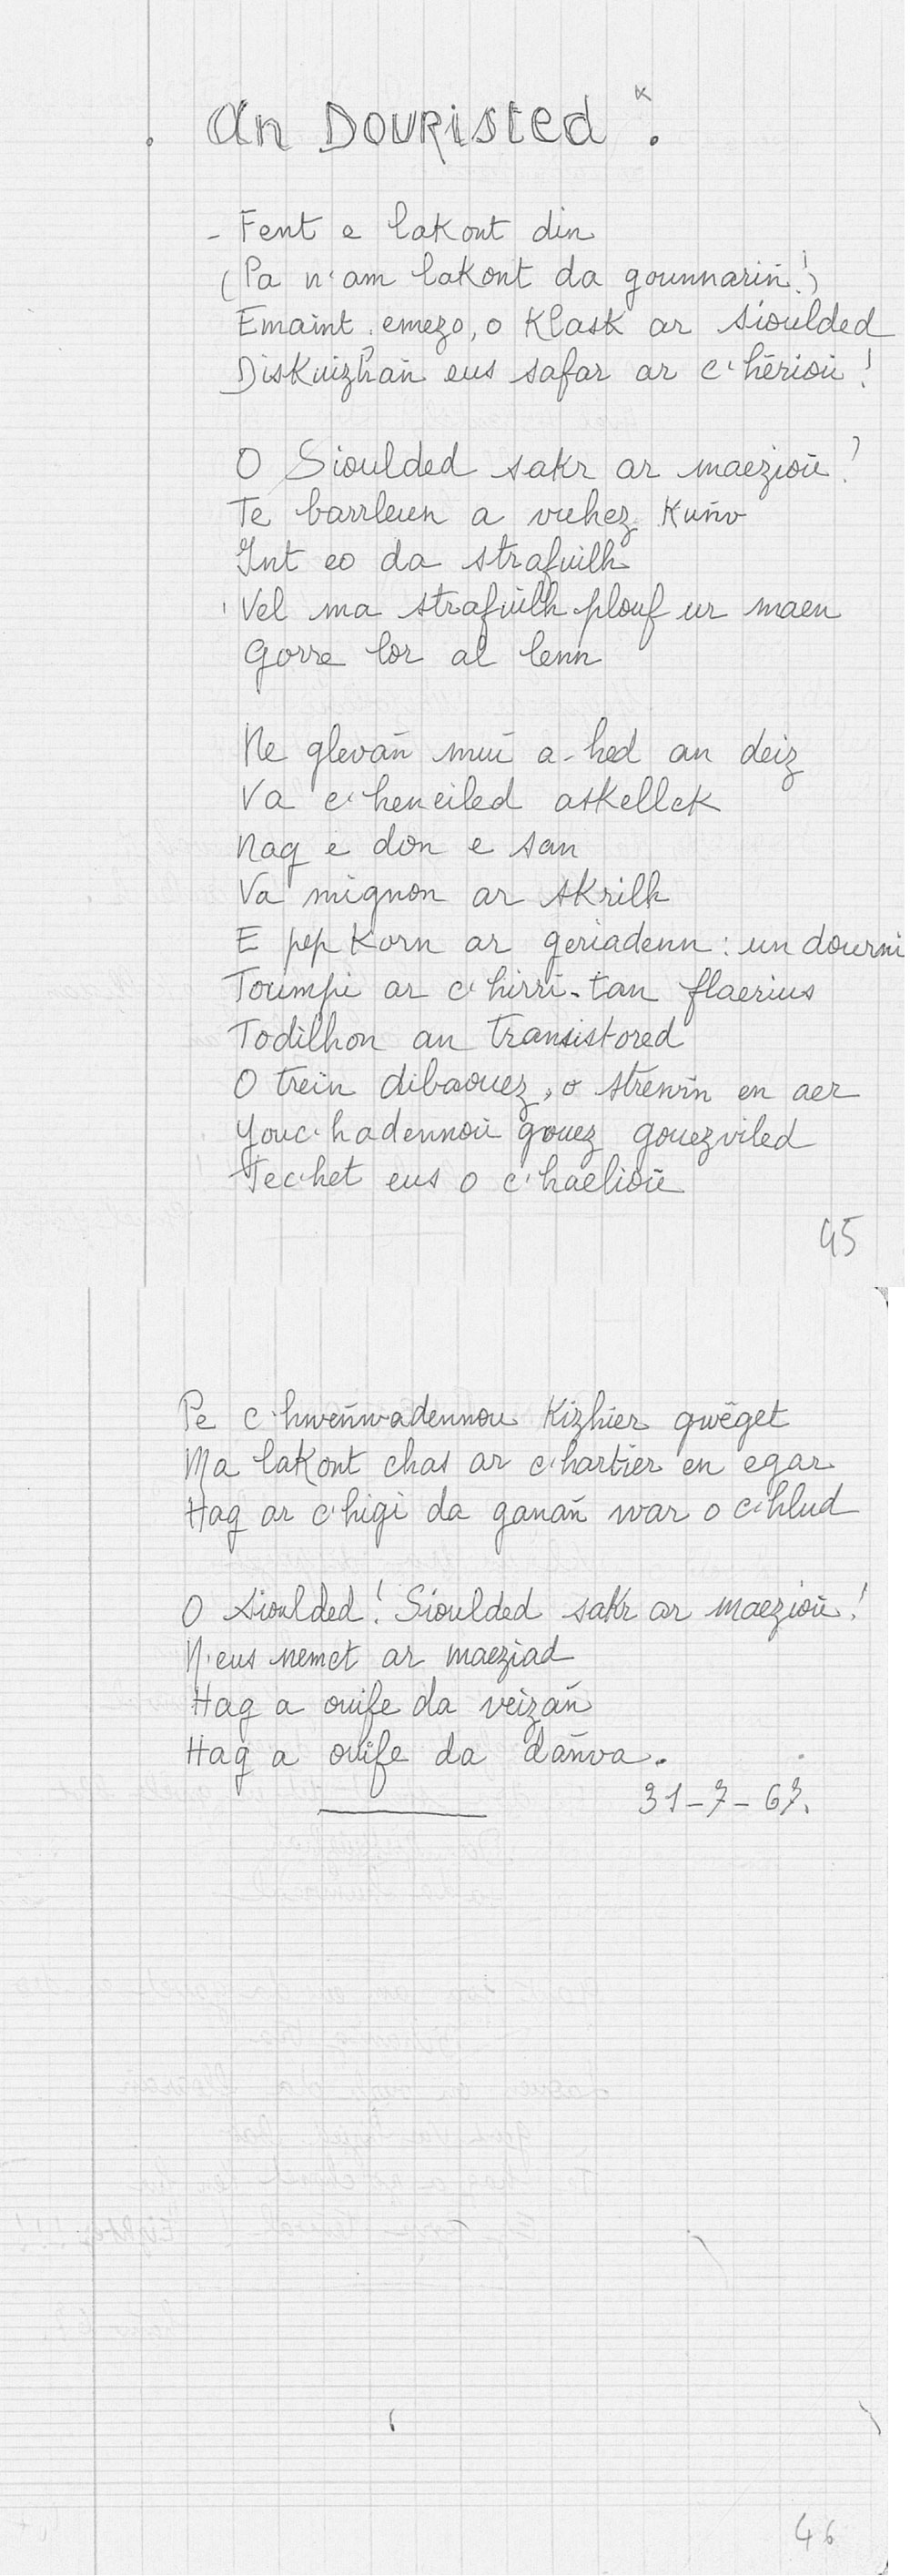 . An Douristed x.
- Fent e lakont din
(Pa n'am lakont da gounnariñ!)
Emaint, emezo, o Klask ar sioulded
Diskuizhañ eus safar ar c'hêrioù!
O Sioulded sakr ar maezioù!
Te barrleun a vuhez Kuñv
Int eo da strafuilh
Vel ma strafuilh plouf ur maen
Gorre lor al lenn
Ne glevañ mui a-hed an deiz
Va c'heneiled askellek
Nag e don e san
Va mignon ar skrilh
E pep korn ar geriadenn: un dourni
Toumpi ar c'hirri-tan flaerius
Todilhon an transistored
O trein dibaouez, o strewiñ en aer
Youc'hadennoù gouez gouezviled
Tec'het eus o c'haelioù
45
Pe c'hweñwadennou Kizhier gwêget
Ma lakont chas ar c'hartier en egar
Hag ar c'higi da ganañ war o c'hlud
O sioulded! Sioulded sakr ar maezioù!
N'eus nemet ar maeziad
Hag a ouife da veizañ
Hag a ouife da dañva.
31-7-67.
46